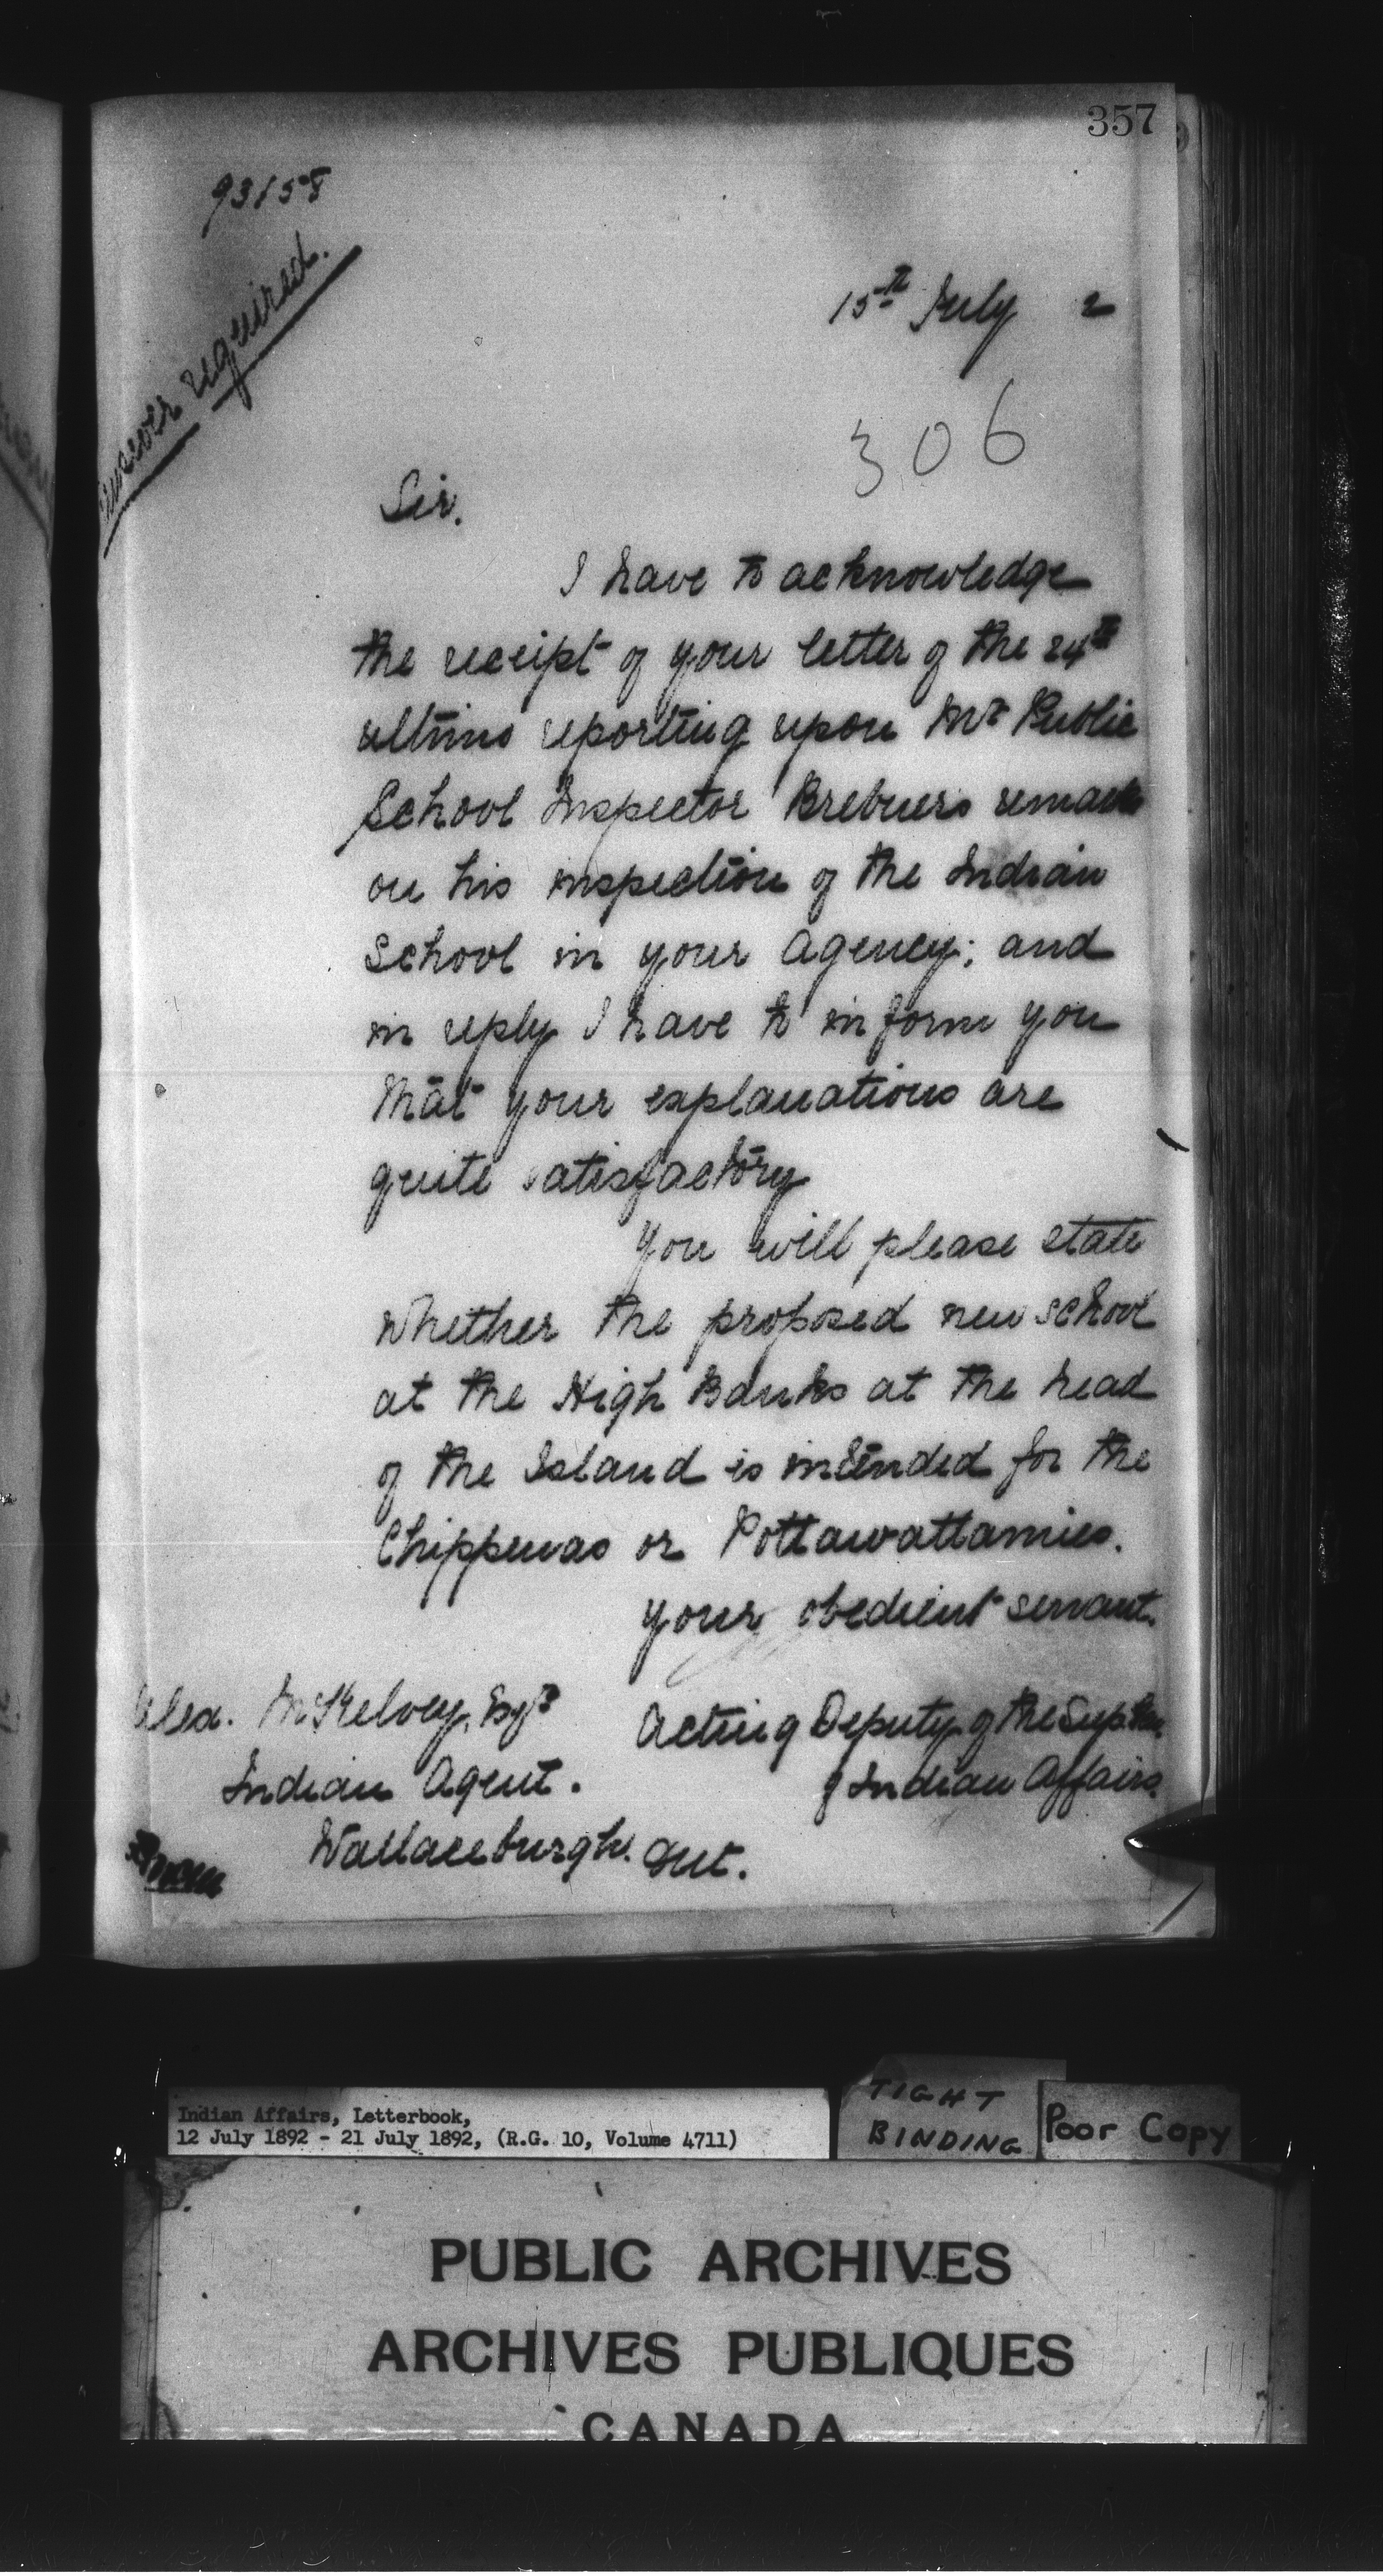 357
93158
Answer required.
15th July 2
306
Sir.
I have to acknowledge
the receipt of your letter of the 24th
ultimo reporting upon Mr Public
School Inspector Brebners remarks
on his inspection of the Indian
School in your Agency; and
in reply I have to inform you
that your explanations are
quite satisfactory
You will please state
whether the proposed new school
at the High Banks at the head
of the Island is intended for the
Chippewas or Pottawattamies.
your obedient servant.
Alex. McKelvey, Esqr
Acting Deputy of the Supt Gen.
Indian Agent.
of Indian Affairs.
Wallaceburgh. Ont.
Indian Affairs, Letterbook,
12 July 1892 - 21 July 1892, (R.G. 10, Volume 4711)
TIGHT
BINDING
Poor Copy
PUBLIC ARCHIVES
ARCHIVES PUBLIQUES
CANADA